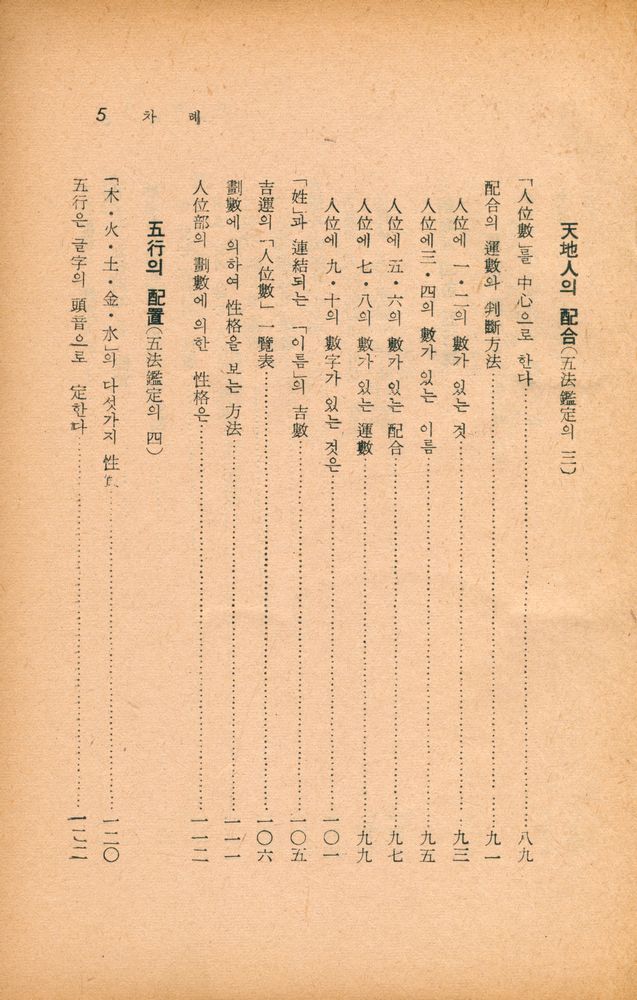 5 차 례
天地人의 配合(五法鑑定의 三)
「人位數」를 中心으로 한다……八九
配合의 運數와 判斷方法……九一
人位에 一・二의 數가 있는 것……九三
人位에 三・四의 數가 있는 이름……九五
人位에 五・六의 數가 있는 配合……九七
人位에 七・八의 數가 있는 運數……九九
人位에 九・十의 數字가 있는 것은……一〇一
「姓」과 連結되는 「이름」의 吉數……一〇五
吉運의 「人位數」一覽表……一〇六
劃數에 의하여 性格을 보는 方法……一一一
人位部의 劃數에 의한 性格은……一一二
五行의 配置(五法鑑定의 四)
「木・火・土・金・水」의 다섯가지 性……一二〇
五行은 글字의 頭音으로 定한다……一二二